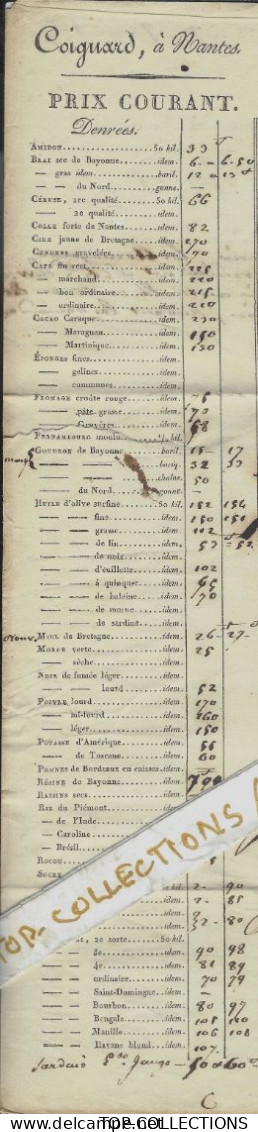 Coiguard, à Nantes.
PRIX COURANT.
Denrées.
AMIDON 50 kil. 33
BRAI sec de Bayonne idem. 6 6-50
— gras idem baril. 12 13
— du Nord gonne. —
CÉRUSE, 1re qualité 50 kil. 66
— 2e qualité idem.
COLLE forte de Nantes idem. 82
CIRE jaune de Bretagne idem. 270
CENDRES gravelées idem. 70
CAFÉ fin vert idem. 225
— marchand idem. 220
— bon ordinaire idem. 215
— ordinaire idem. 210
CACAO Caraque idem. 230
— Maragnan idem. 150
— Martinique idem. 130
ÉPONGES fines idem.
— gelines idem.
— communes idem.
FROMAGE croûte rouge idem. 75
— pâte grasse idem. 73
— Gruyères idem. 68
FERNAMBOURG moulu 1/2 kil.
GOUDRON de Bayonne baril. 15 17
— barriq. 32 33
— chalos. 50
— du Nord gonne. —
HUILE d'olive surfine 50 kil. 152 154
— fine idem. 150 151
— grasse idem. 112
— de lin idem. 53 52
— de noix idem.
— d'œillette idem. 102
— à quinquet idem. 65
— de baleine idem. 70
— de morue idem.
— de sardine idem.
MIEL de Bretagne idem. 26 27
MORUE verte idem. 25
— sèche idem.
NOIR de fumée léger idem.
— lourd idem. 52
POIVRE lourd idem. 170
— mi-lourd idem. 160
— léger idem. 150
POTASSE d'Amérique idem. 55
— de Toscane idem. 60
PRUNES de Bordeaux en caisses idem.
RÉSINE de Bayonne idem.
RAISINS secs idem.
RIZ du Piémont
— de l'Inde
— Caroline
— Brésil
ROCOU 5
SUCRE
kil. 2 90
idem. 2 85
idem. 80
2e sorte 50 kil.
— 3e idem. 90 98
— 4e idem. 81 89
— ordinaire idem. 70 79
— Saint-Domingue idem. —
— Bourbon idem. 80 97
— Bengale idem. 105 110
— Manille idem. 106 108
— Havane blond idem. 107
TOP-COLLECTIONS
CLICK ON THE IMAGE TO ENLARGE IT - WWW.TOP-COLLECTIONS.COM